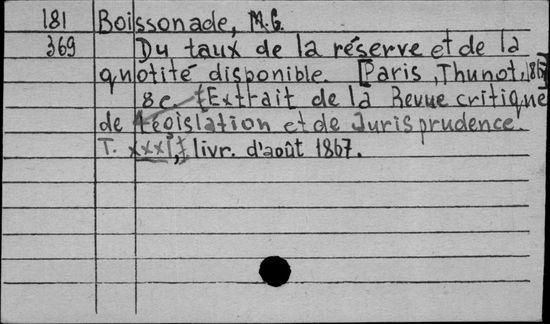 181 Boissonade, M.G.
369 Du taux de la réserve et de la
quotité disponible. [Paris, Thunot, 1867
8c. [Extrait de la Revue critique
de Législation et de Jurisprudence.
T. XXXI, livr. d'août 1867.